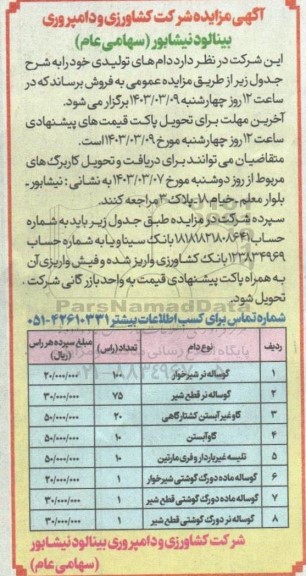 آگهی مزایده شرکت کشاورزی و دامپروری
بینالود نیشابور (سهامی عام)
این شرکت در نظر دارد دام های تولیدی خود را به شرح
جدول زیر از طریق مزایده عمومی به فروش برساند که در
ساعت ۱۲ روز چهارشنبه ۱۴۰۳/۰۳/۰۹ برگزار می شود.
آخرین مهلت برای تحویل پاکت قیمت های پیشنهادی
ساعت ۱۲ روز چهارشنبه مورخ ۱۴۰۳/۰۳/۰۹ است.
متقاضیان می توانند برای دریافت و تحویل کاربرگ های
مربوط از روز دوشنبه مورخ ۱۴۰۳/۰۳/۰۷ به نشانی: نیشابور -
بلوار معلم - خیام ۱۸- پلاک ۳ مراجعه کنند.
سپرده شرکت در مزایده طبق جدول زیر باید به شماره
حساب ۱۸۱۸۱۸۲۱۸۰۰۸۶۴۱ بانک سینا و یا به شماره حساب
۱۲۳۸۳۴۹۶۹ بانک کشاورزی واریز شده و فیش واریزی آن
به همراه پاکت پیشنهادی قیمت به واحد بازرگانی شرکت
تحویل شود.
ParsNamadData
شماره تماس برای کسب اطلاعات بیشتر ۴۲۶۱۰۳۳۱-۰۵۱
ردیف نوع دام تعداد (راس) مبلغ سپرده هر راس (ریال)
۱ گوساله نر شیرخوار ۱۰۰ ۲۰/۰۰۰/۰۰۰
۲ گوساله نر قطع شیر ۷۵ ۳۰/۰۰۰/۰۰۰
۳ گاو غیر آبستن کشتارگاهی ۲۰ ۵۰/۰۰۰/۰۰۰
۴ گاو آبستن ۱۰ ۵۰/۰۰۰/۰۰۰
۵ تلیسه غیر باردار و فری مارتین ۱۰ ۵۰/۰۰۰/۰۰۰
۶ گوساله ماده دورگ گوشتی شیرخوار ۱ ۲۰/۰۰۰/۰۰۰
۷ گوساله ماده دورگ گوشتی قطع شیر ۱ ۳۰/۰۰۰/۰۰۰
۸ گوساله نر دورگ گوشتی قطع شیر ۱ ۳۰/۰۰۰/۰۰۰
شرکت کشاورزی و دامپروری بینالود نیشابور
(سهامی عام)